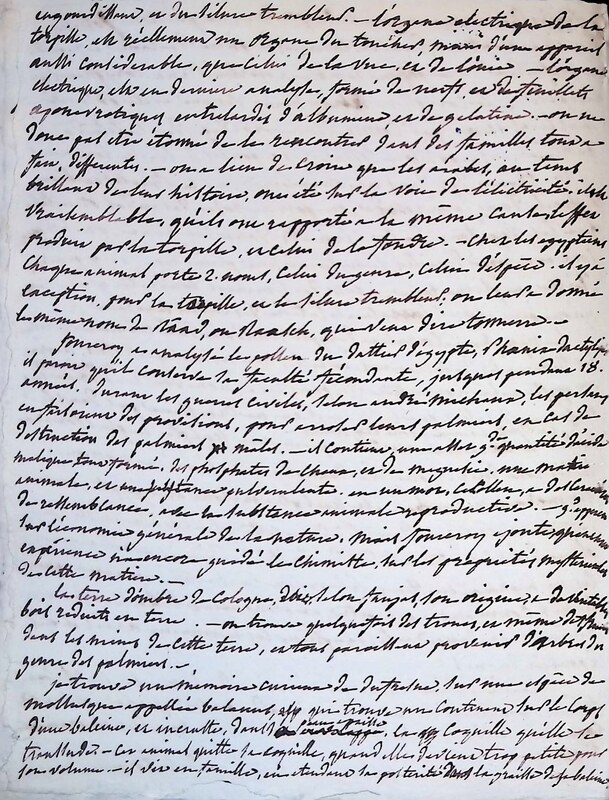 engourdisseur, et du silure trembleur. – L'organe electrique de la
torpille, est réellement un organe du toucher, muni d'un appareil
aussi considérable, que celui de la vue, et de l'ouie – L'organe
electrique, est en derniere analyse, formé de nerfs, et de feuillets
aponevrotiques entrelardés d'albumen et de gelatine. – on ne
donc pas etre étonné de le rencontrer dans des familles tout a
fait, differentes. – on a lieu de croire que les arabes, au tems
brillant de leur histoire, ont été sur la voie de l'électricité. il est
vraisemblable, qu'ils ont rapporté a la même cause l'effet
produit par la torpille, et celui de la foudre. – chez les egyptiens
chaque animal porte 2. noms, celui du genre, celui d'espèce. il y a
exception, pour la torpille, et le silure trembleur, on leur a donné
le même nom de râad, ou raasch, qui veut dire tonnerre. –
fourcroy a analysé le pollen du dattier d'égypte, Phœnix dactylif
il paroit qu'il conserve sa faculté fécondante, jusques pendant 18.
années. durant les guerres civiles, selon andré michaux, les persans
en feroient des provisions, pour arroser leurs palmiers, en cas de
destruction des palmiers mâles. – il contient, une assez gde quantité d'acide
malique tout formé, des phosphates de chaux, et de magnésie, une matiere
animale, et une substance pulverulente. en un mot, ce pollen, a de
de ressemblance, avec la substance animale reproductive. –
sur l'économie générale de la nature. mais fourcroy ajoute, qu'aucune
expérience n'a encore guidé le chimiste, sur les propriétés mysterieuses
de cette matiere. –
la terre d'ombre de Cologne, doit, selon faujas, son origine, a de véritables
bois réduits en terre. – on trouve quelquefois des troncs, et même des fruits
dans les mines de cette terre, et tous paraissent provenir d'arbres du
genre des palmiers. –
je trouve un mémoire curieux de dufresne, sur une espèce de
mollusque appellée balanus, que trouve un continent sur le corps
d'une baleine, et incruste, dans sa graisse, la coquille qu'elle se
transsude. – Cet animal quitte sa coquille, quand elle devient trop petite pour
son volume. – il vit en famille, en etendant sa postérité dans la graisse de sa baleine